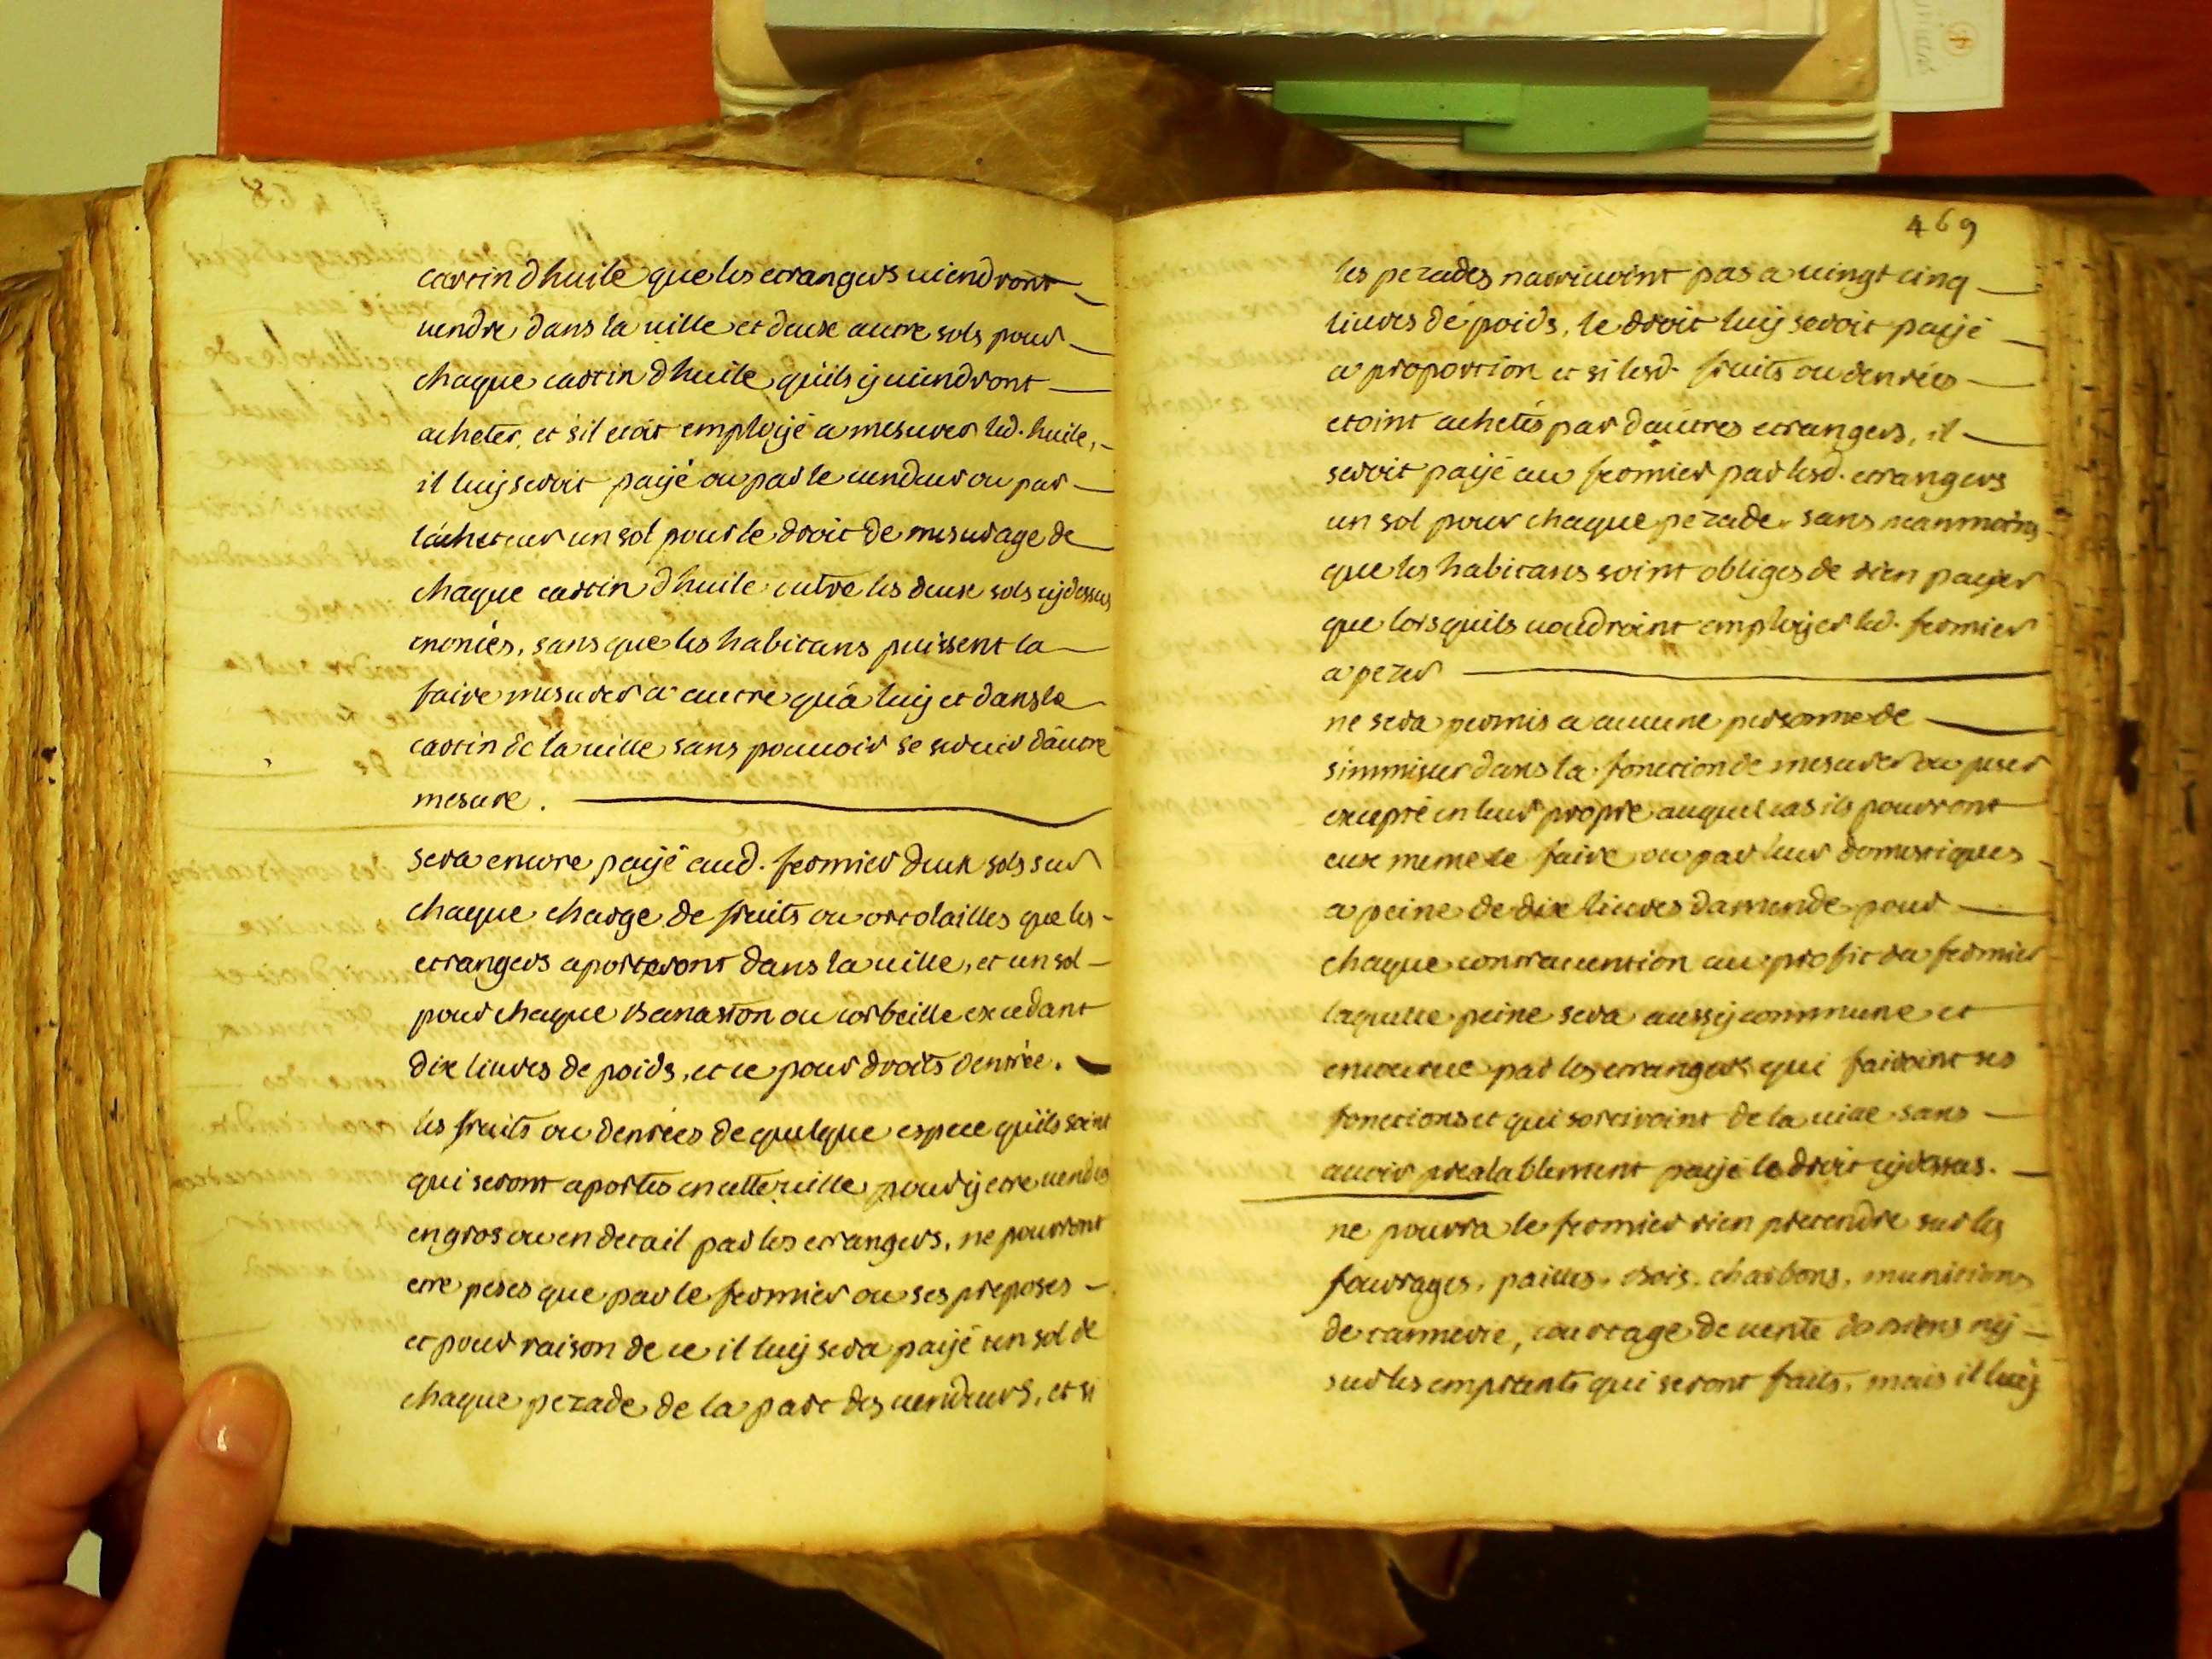 cartin dhuile que les etrangers uiendront
uendre dans la uille et deux autre sols pour
chaque cartin dhuile quils y uiendront
acheter, et sil etoit employé a mesurer lad. huile,
il luy seroit payé ou par le uendeur ou par
lacheteur un sol pour le droit de mesurage de
chaque cartin dhuile outre les deux sols cydessus
enoncés, sans que les habitans puissent la
faire mesurer a autre qua luy et dans le
cartin de la uille sans pouuoir se seruir dautre
mesure.
sera encore payé aud. fermier deux sols sur
chaque charge de fruits ou ortolailles que les
etrangers aporteront dans la uille, et un sol
pour chaque Banaston ou corbeille excedant
dix liures de poids, et ce pour droits dentrée.
les fruits ou denrées de quelque espece quils soint
qui seront aportés en cette uille pour y etre uendus
en gros ou en detail par les etrangers, ne pourront
etre pesés que par le fermier ou ses preposes
et pour raison de ce il luy sera payé un sol de
chaque pezade de la part des uendeurs, et si
469
les pezades narriuoint pas a uingt cinq
liures de poids, le droit luy seroit payé
a proportion et si lesd. fruits ou denrées
etoint achetés par dautres etrangers, il
seroit payé au fermier par lesd. etrangers
un sol pour chaque pezade, sans neanmoins
que les habitans soint obligés de rien payer
que lors quils uoudroint employer led. fermier
a pezer
ne sera permis a aucune personne de
simmiscer dans la fonction de mesurer ou peser
excepté en leur propre auquel cas ils pourront
eux meme le faire ou par leur domestiques
a peine de dix liures damende pour
chaque contrauention au profit du fermier
laquelle peine sera aussy commune et
encourue par les etrangers qui fairoint ses
fonctions et qui sortiroint de la uille sans
auoir prealablement payé le droit cydessus.
ne pourra le fermier rien pretendre sur les
fourrages, pailles, bois, charbons, munitions
de tannerie, courtage de uente de biens ny
sur les emprunts qui seront faits, mais il luy